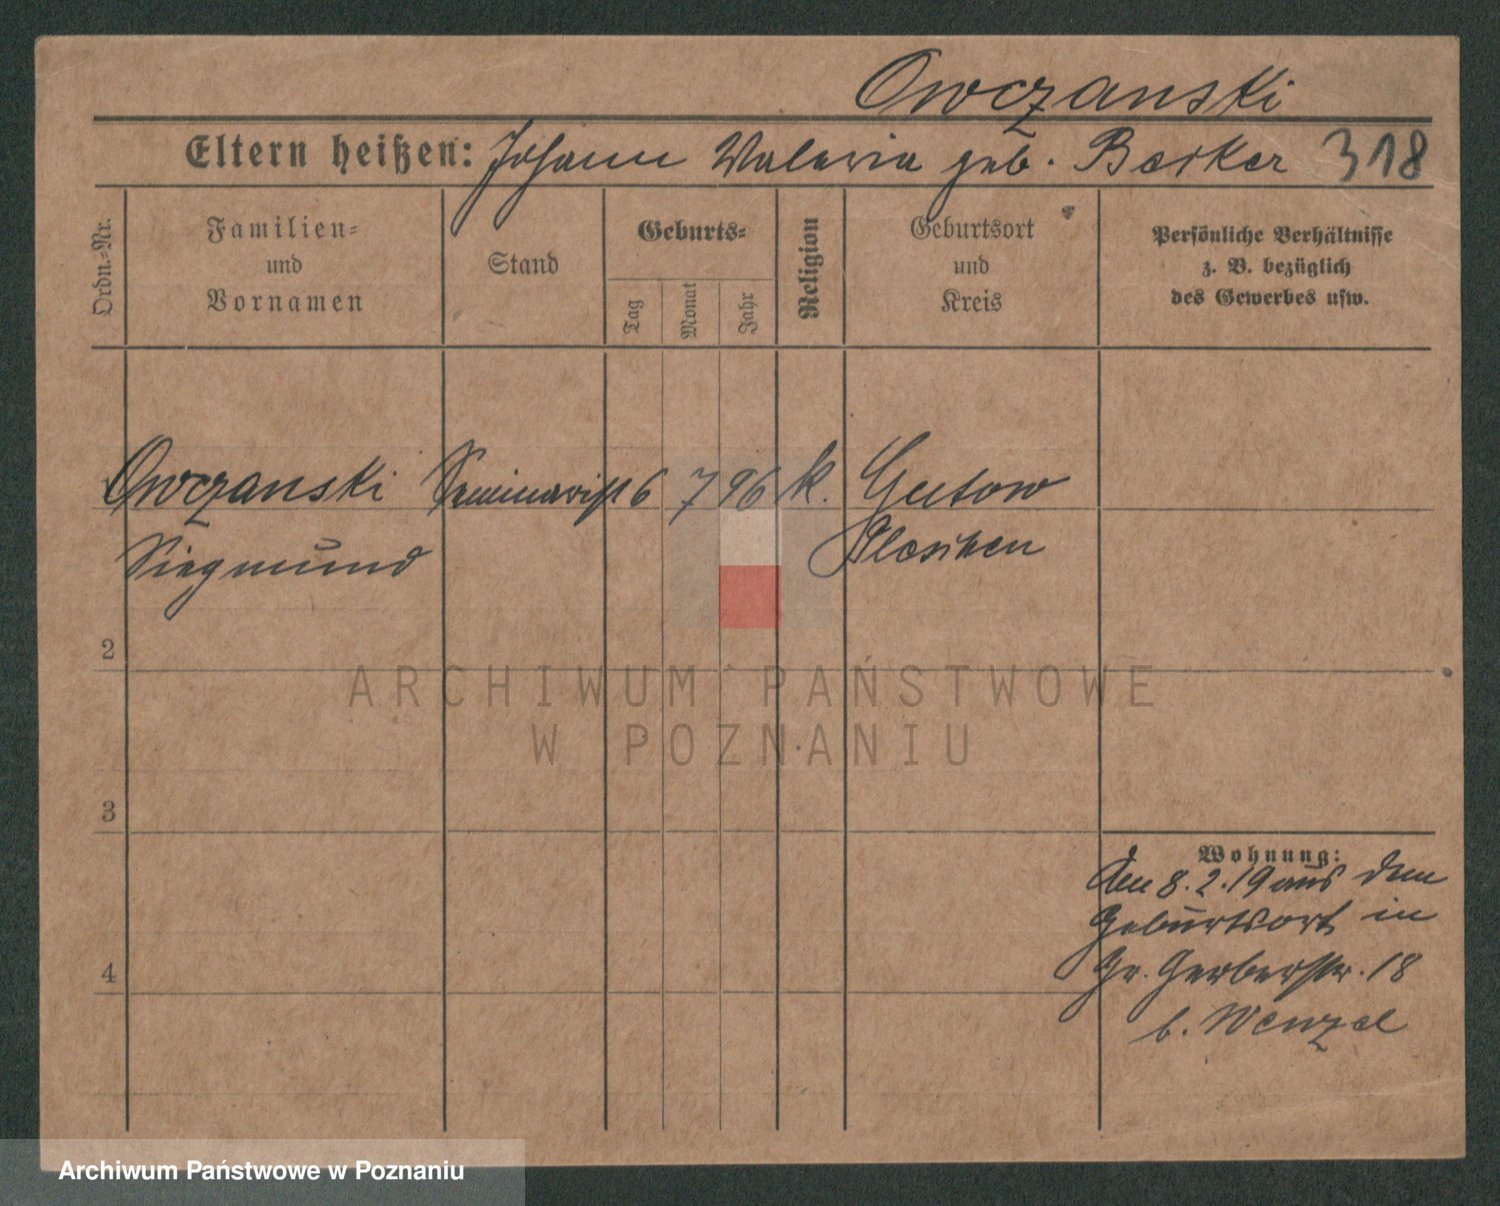 Owczanski
Eltern heißen: Johann Waleria geb. Becker 318
Ordn.-Nr.
Familien-
und
Vornamen
Stand
Geburts-
Tag
Monat
Jahr
Religion
Geburtsort
und
Kreis
Persönliche Verhältnisse
z. B. bezüglich
des Gewerbes usw.
Owczanski Seminarist 6 7 96 k. Gutow
Siegmund Pleschen
2
ARCHIWUM PAŃSTWOWE
W POZNANIU
3
Wohnung:
den 8.2.19 aus dem
Geburtsort in
Gr. Gerberstr. 18
b. Wenzel
4
Archiwum Państwowe w Poznaniu